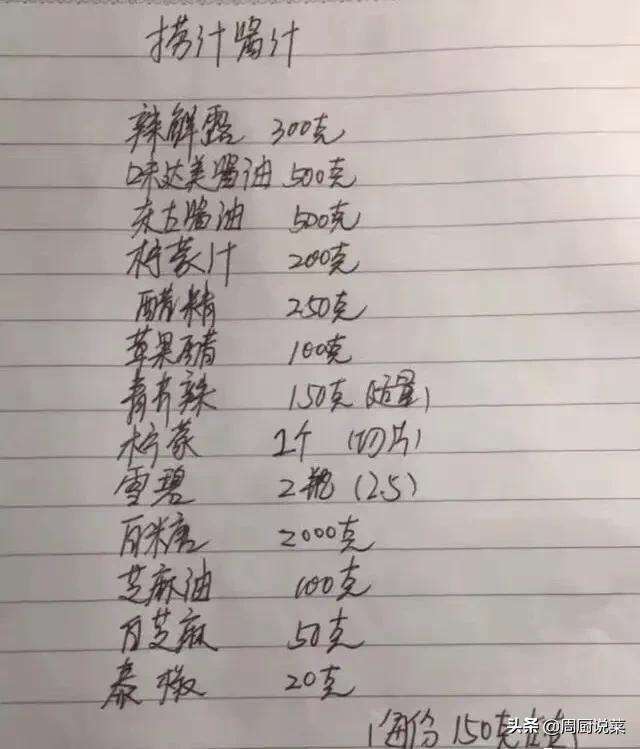 捞汁酱汁
辣鲜露 300克
味达美酱油 500克
东古酱油 500克
柠檬汁 200克
醋精 250克
苹果醋 100克
青芥辣 150克(适量)
柠檬 2个 (切片)
雪碧 2瓶 (2.5)
白米唐 2000克
芝麻油 100克
白芝麻 50克
泰椒 20克
(每份 150克
头条 @周厨说菜